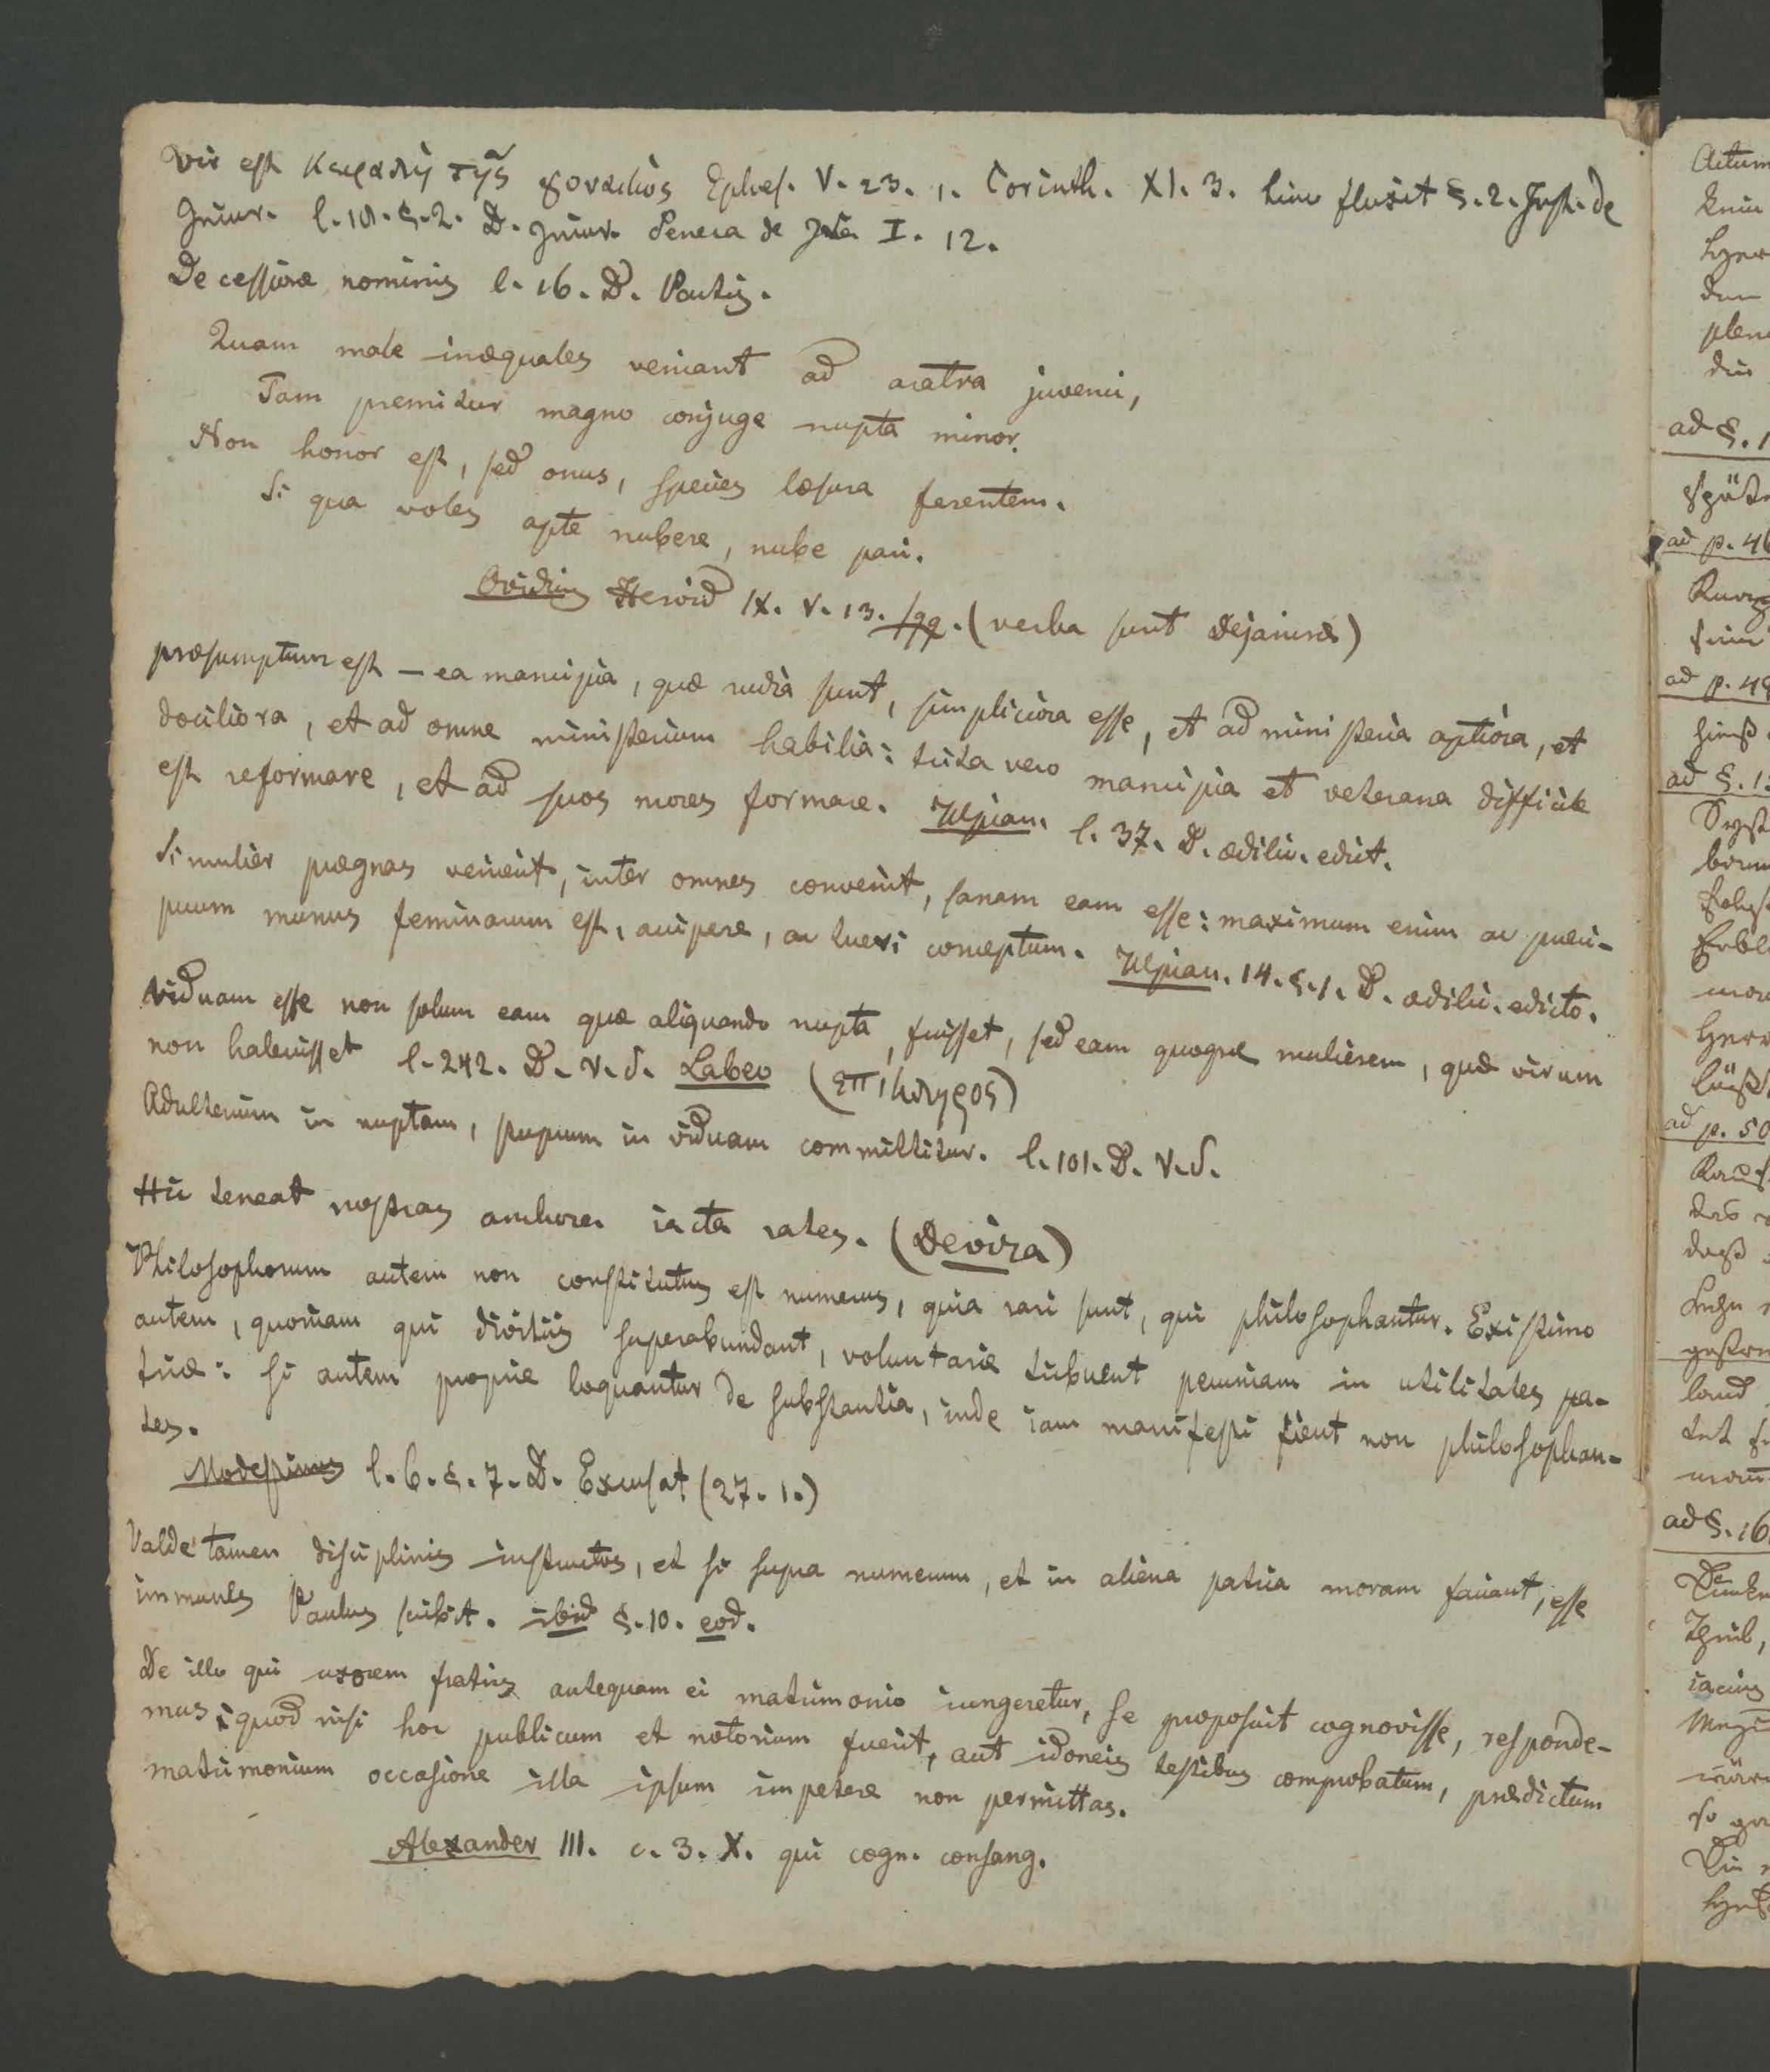 Vir est κεφαλὴ τῆς γυναικὸς Ephes. V. 23. 1. Corinth. XI. 3. hinc fluxit §. 2. Inst. de
Iniur. l. 18. §. 2. D. Iniur. Seneca de Ira I. 12.
De cessione nominis l. 16. D. Pactis.
Quam male inæquales veniant ad aratra juvenci,
Tam premitur magno conjuge nupta minor.
Non honor est, sed onus, species læsura ferentem.
Si qua voles apte nubere, nube pari.
Ovidius Heroid IX. v. 13. sqq. (verba sunt Dejaniræ)
præsumptum est – ea mancipia, quæ rudia sunt, simpliciora esse, et ad ministeria aptiora, et
dociliora, et ad omne ministerium habilia: trita vero mancipia et veterana difficile
est reformare, et ad suos mores formare. Ulpian. l. 37. D. ædilic. edict.
Si mulier prægnas venierit, inter omnes convenit, sanam eam esse: maximum enim ac præci-
puum munus feminarum est, accipere, ac tueri conceptum. Ulpian. 14. §. 1. D. ædilic. edicto.
Viduam esse non solum eam quæ aliquando nupta, fuisset, sed eam quoque mulierem, quæ virum
non habuisset l. 242. D. V. S. Labeo (επικληρος)
Adulterium in nuptam, stuprum in viduam committitur. l. 101. D. V. S.
Hic teneat nostras anchora iacta rates. (Devisa)
Philosophorum autem non constitutus est numerus, quia rari sunt, qui philosophantur. Existimo
autem, quoniam qui divitiis superabundant, voluntarie tribuent pecuniam in utilitates pa-
triæ: si autem proprie loquantur de substantia, inde iam manifesti fient non philosophan-
tes.
Modestinus l. 6. §. 7. D. Excusat. (27. 1.)
Valde tamen disciplinis instructos, et si supra numerum, et in aliena patria moram faciant, esse
immunes Paulus scribit. ibid §. 10. eod.
De illo qui uxorem fratris antequam ei matrimonio iungeretur, se proposuit cognovisse, responde-
mus, quod nisi hoc publicum et notorium fuerit, aut idoneis testibus comprobatum, prædictum
matrimonium occasione illa ipsum impetere non permittas.
Alexander III. c. 3. X. qui cogn. consang.
ad §. 1
ad p. 46
ad p. 48
ad §. 1
ad p. 50
ad §. 16.